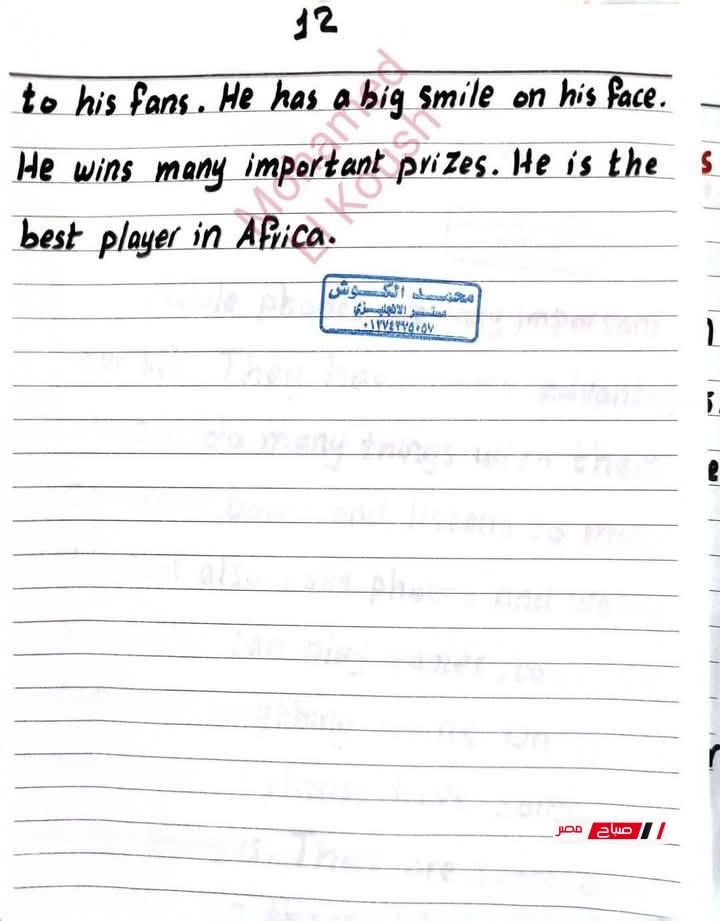 12
to his fans. He has a big smile on his face.
He wins many important prizes. He is the
best player in Africa.
Mohamed
El Koush
محمد الكوش
مستر الانجليزي
٠١٢٧٤٣٢٥٠٥٧
صباح مصر